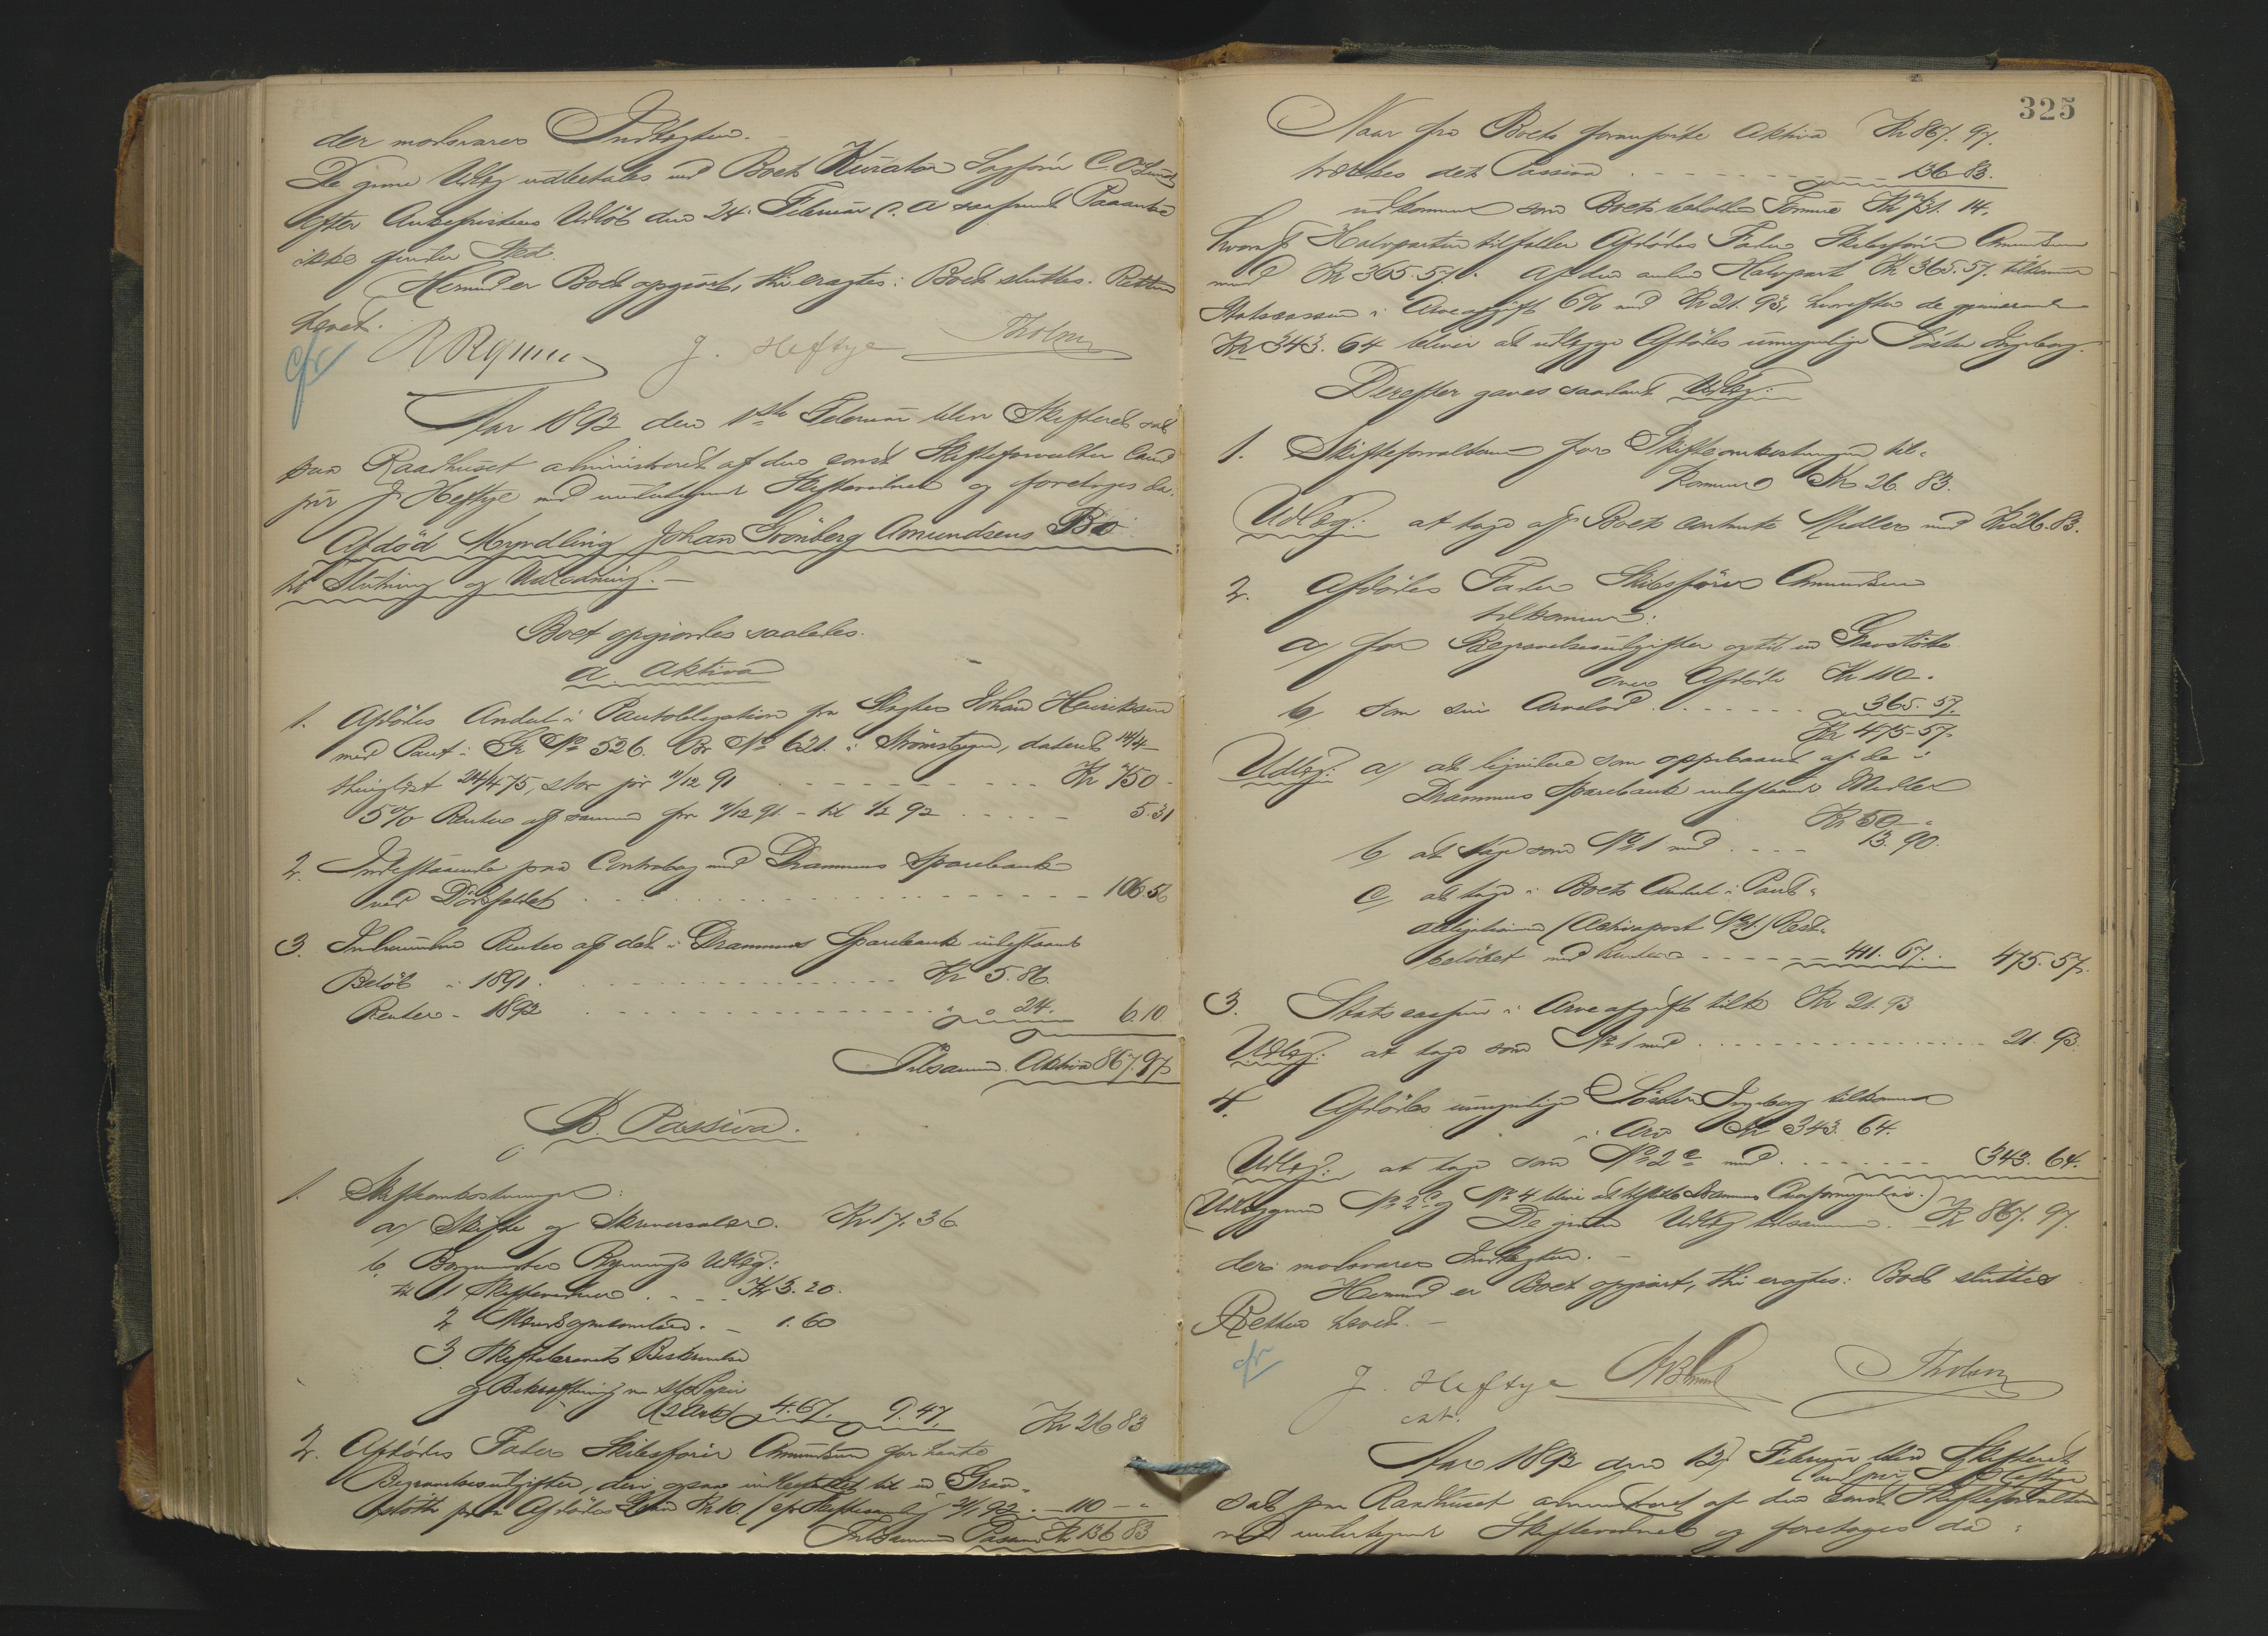 der modsvarer Indtægten.
De givne Udlæg udbetales ved Boets Kurator Sagfører C. O. Lund
efter Ankefristens Udløb den 24. Februar d. A. saafremt Paaanke
ikke finder Sted.
Hermed er Boet opgjort, thi eragtes: Boet sluttes. Retten
hævet.
cfr
J. Heftye
Tholm
Aar 1892 den 1ste Februar blev Skifteret sat
paa Raadhuset administreret af den const. Skifteforvalter Cand
jur J. Heftye med undertegnede Skiftevidner og foretoges da:
Afdød Myndling Johan Grønberg Amundsens Bo
til Slutning og Udlodning.-
Boet opgjordes saaledes.
A. Aktiva
1. Afdødes Andel i Pantobligation fra Slagter Johan Henriksen
med Pant i Gr. No 526. Br No 621. i Strømsbyen, dateret 14/4
thinglæst 24/4 75, stor pr 11/12 91 Kr 750 -
5% Renter af samme fra 11/12 91 - til 1/2 92 5.31
2. Indestaaende paa Contrabog med Drammens Sparebank
ved Dødsfaldet 106.56
3. Indvundne Renter af det i Drammens Sparebank indestaaende
Beløb i 1891. Kr 5.86.
Renter - 1892 " 0 24. 6.10
Tilsammen Aktiva 867.97
B. Passiva.
1. Skifteomkostninger:
a/ Skifte og Skriversalær. Kr 17.36
b. Borgermester Rynnings Udlæg:
til 1 Skiftevidner Kr 3.20.
2 1.60
3 Skiftebrevets Beskrivelse
og Bekræftning m. st. Papir
(2 Ark) 4.67. 9.47, Kr 26 83
2. Afdødes Fader Skibsfører Amundsen for havte
Begravelsesudgifter, deri ogsaa indbefattet til en Grav-
støtte paa Afdødes Grav Kr 10. (cfr Skiftesamling 2/1 92 - 110 - "
Tilsammen Passiva Kr 136 83
325
Naar fra Boets foranførte Aktiva Kr 867. 97.
trækkes dets Passiva 136-83.
udkommer som Boets beholdne Formue Kr 731. 14.
hvoraf Halvparten tilfalder Afdødes Fader Skibsfører Amundsen
med Kr 365.57. Af den anden Halvpart Kr 365.57. tilkommer
Statscassen i Arveafgift 6% med Kr 21. 93, hvorefter de gjenværende
Kr 343. 64 bliver at udlægge Afdødes umyndige Søster Ingeborg.
Derefter gaves saadant Udlæg:
1. Skifteforvalteren for Skifteomkostninger til-
kommer Kr 26. 83.
Udlæg: at tage af Boets contante Midler med Kr 26.83.
2. Afdødes Fader Skibsfører Amundsen
tilkommer:
a/ for Begravelsesudgifter og til en Gravstøtte
over Afdøde Kr 110 -
b/ som sin Arvelod 365. 57.
Kr 475-57.
Udlæg: a/ at liqvidere som oppebaaret af de i
Drammens Sparebank indestaaende Midler
Kr 50 -
b/ at tage som No 1 med 13. 90.
c/ at tage i Boets Andel i Pant-
obligationen (Activapost No 1) Rest-
beløbet med Renter 411. 67. 475.57.
3. Statscassen i Arveafgift tilk. Kr 21.93
Udlæg: at tage som No 1 med 21. 93.
4. Afdødes umyndige Søster Ingeborg tilkommer
i Arv Kr 343. 64.
Udlæg: at tage som No 2 c med 343. 64.
(Udlæggene No 2 c og No 4 bliver at tilstille Drammens Overformynderi.)
De givne Udlæg tilsammen. Kr 867. 97.
der modsvarer Indtægten. -
Hermed er Boet opgjort, thi eragtes: Boet sluttes
Retten hævet. -
cfr
J. Heftye
cst.
Tholm
Aar 1892 den 12. Februar blev Skifteret
Cand jur J Heftye
sat paa Raadhuset administreret af den const. Skifteforvalter
med undertegnede Skiftevidner og foretoges da: